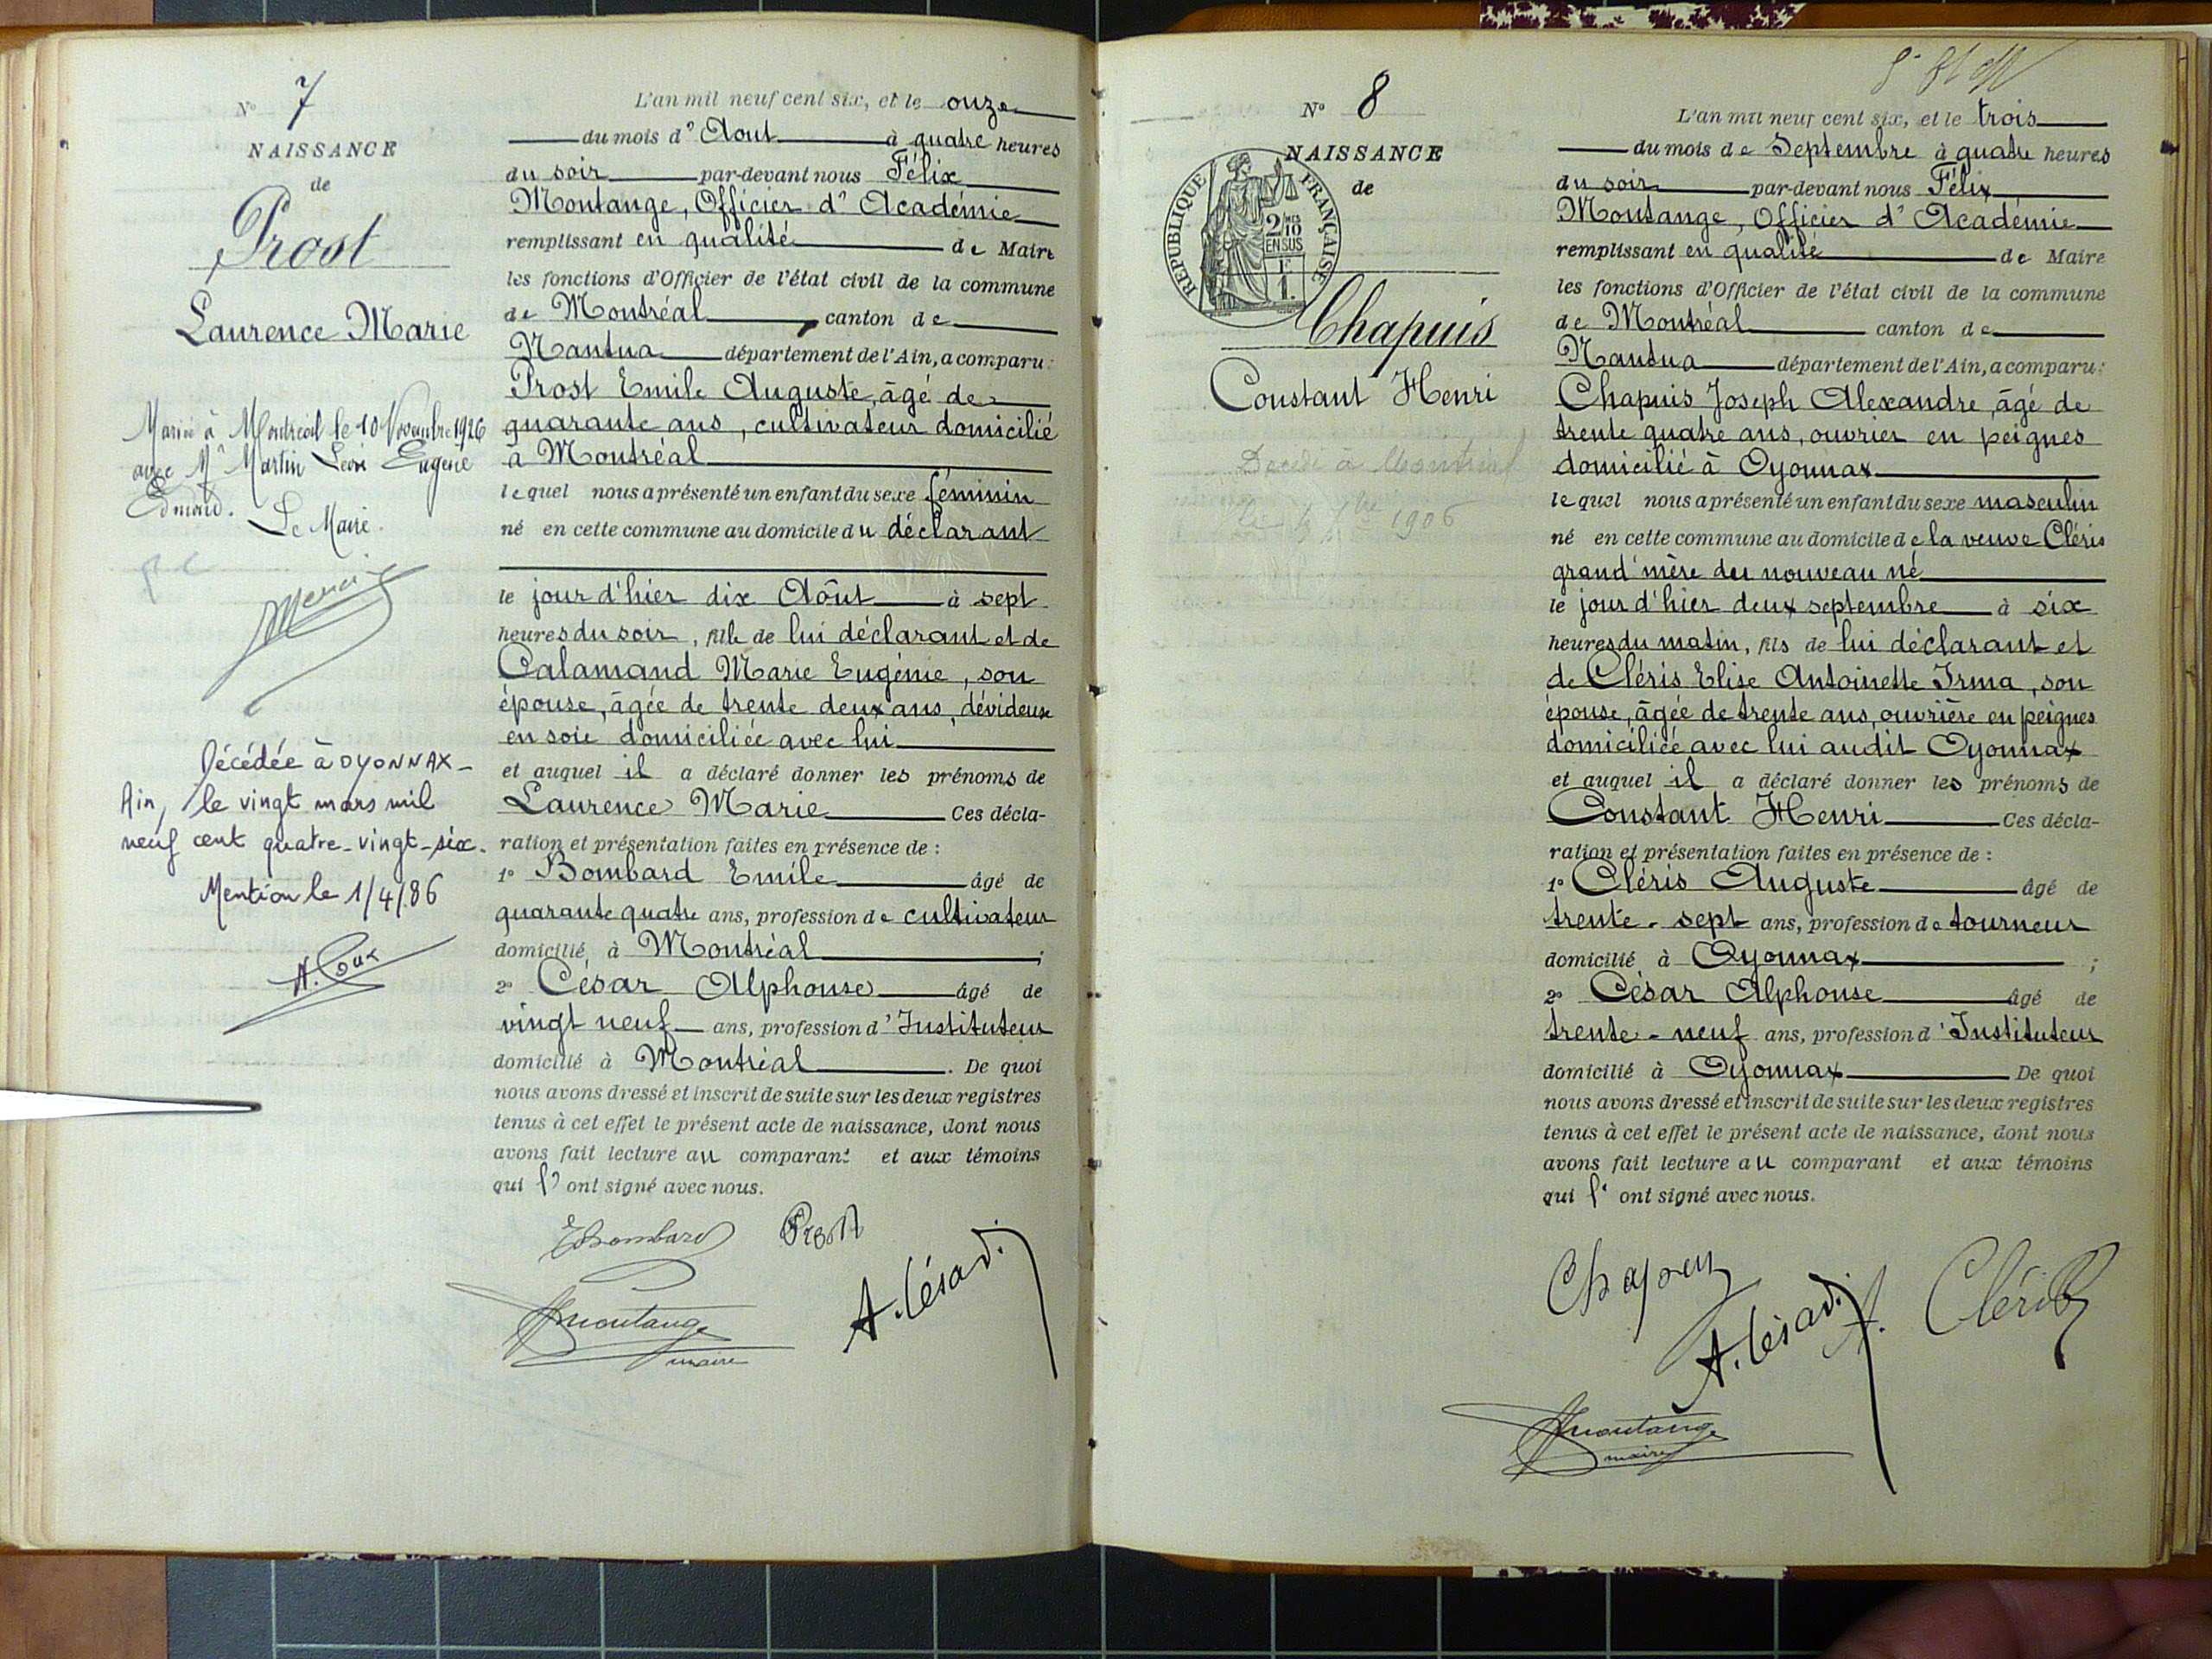 N° 7
NAISSANCE
de
Prost
Laurence Marie
Mariée à Montréal le 10 Novembre 1926
avec Mr Martin Léon Eugène
Edmond. Le Maire.
Décédée à OYONNAX -
Ain, le vingt mars mil
neuf cent quatre-vingt-six.
Mention le 1/4/86
L'an mil neuf cent six, et le onze
du mois d' Aout à quatre heures
du soir par-devant nous Félix
Montange, Officier d' Académie
remplissant en qualité de Maire
les fonctions d'Officier de l'état civil de la commune
de Montréal canton de
Nantua département de l'Ain, a comparu:
Prost Emile Auguste, âgé de
quarante ans, cultivateur domicilié
à Montréal
lequel nous a présenté un enfant du sexe féminin
né en cette commune au domicile du déclarant
le jour d'hier dix Aôut à sept
heures du soir, fille de lui déclarant et de
Calamand Marie Eugénie, son
épouse, âgée de trente deux ans, dévideuse
en soie domiciliée avec lui
et auquel il a déclaré donner les prénoms de
Laurence Marie Ces décla-
ration et présentation faites en présence de :
1° Bombard Emile âgé de
quarante quatre ans, profession de cultivateur
domicilié à Montréal ;
2° César Alphonse âgé de
vingt neuf ans, profession d' Instituteur
domicilié à Montréal . De quoi
nous avons dressé et inscrit de suite sur les deux registres
tenus à cet effet le présent acte de naissance, dont nous
avons fait lecture au comparant et aux témoins
qui l' ont signé avec nous.
EBombard Prost
A. César
Montange
maire
N° 8
NAISSANCE
de
RÉPUBLIQUE FRANÇAISE
2/10 EN SUS
Chapuis
Constant Henri
Décédé à Montréal
1906
L'an mil neuf cent six, et le trois
du mois de Septembre à quatre heures
du soir par-devant nous Félix
Montange, Officier d' Académie
remplissant en qualité de Maire
les fonctions d'Officier de l'état civil de la commune
de Montréal canton de
Nantua département de l'Ain, a comparu:
Chapuis Joseph Alexandre, âgé de
trente quatre ans, ouvrier en peignes
domicilié à Oyonnax
lequel nous a présenté un enfant du sexe masculin
né en cette commune au domicile de la veuve Cléris
grand'mère du nouveau né
le jour d'hier deux septembre à six
heures du matin, fils de lui déclarant et
de Cléris Elise Antoinette Irma, son
épouse, âgée de trente ans, ouvrière en peignes
domiciliée avec lui audit Oyonnax
et auquel il a déclaré donner les prénoms de
Constant Henri Ces décla-
ration et présentation faites en présence de :
1° Cléris Auguste âgé de
trente-sept ans, profession de tourneur
domicilié à Oyonnax ;
2° César Alphonse âgé de
trente-neuf ans, profession d' Instituteur
domicilié à Oyonnax De quoi
nous avons dressé et inscrit de suite sur les deux registres
tenus à cet effet le présent acte de naissance, dont nous
avons fait lecture au comparant et aux témoins
qui l' ont signé avec nous.
Chapuis
A. César A. Cléris
Montange
maire